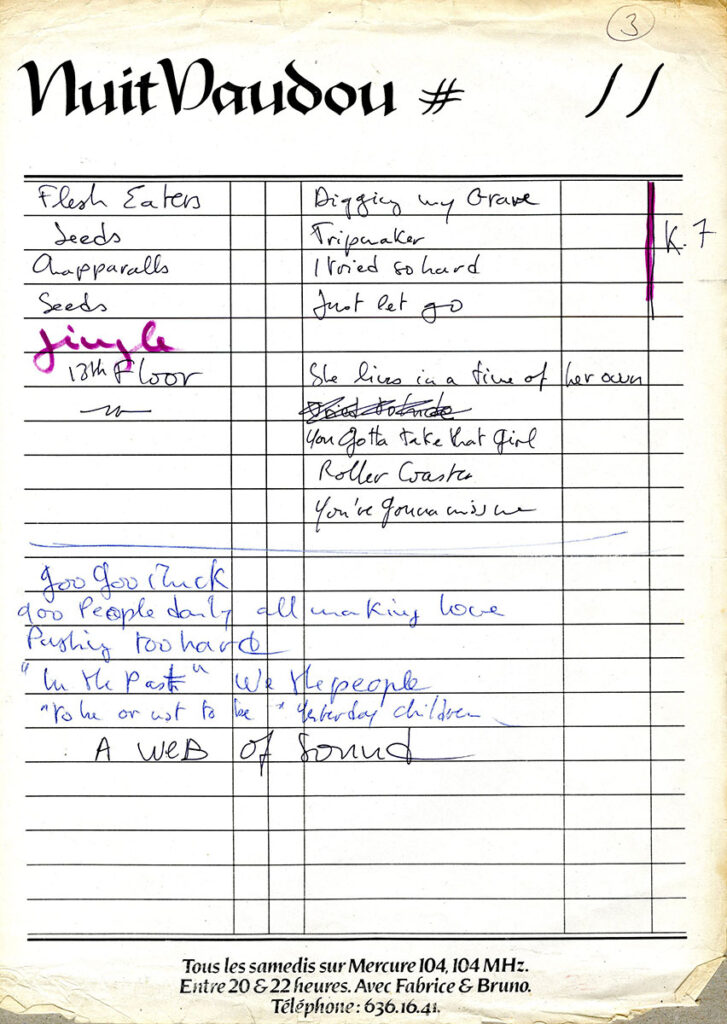 3
Nuit Vaudou # 11
Flesh Eaters Digging my Grave
Seeds Tripmaker K.7
Chapparalls I tried so hard
Seeds Just let go
Jingle
13th Floor She lives in a time of her own
You Gotta take that Girl
Roller Coaster
You're Gonna miss me
goo goo muck
900 People daily all making love
Pushing too hard
"In the Past" We the people
"to be or not to be" Yesterday children
A WEB of Sound
Tous les samedis sur Mercure 104, 104 MHz.
Entre 20 & 22 heures. Avec Fabrice & Bruno.
Téléphone : 636.16.41.